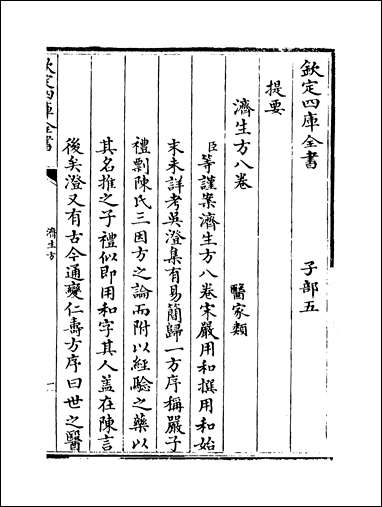 欽定四庫全書
子部五
提要
醫家類
濟生方八卷
臣等謹案濟生方八卷宋嚴用和撰用和始
末未詳考吳澄集有易簡歸一方序稱嚴子
禮剽陳氏三因方之論而附以經驗之藥以
其名推之子禮似即用和字其人蓋在陳言
後矣澄又有古今通變仁壽方序曰世之醫
欽定四庫全書
濟生方
一